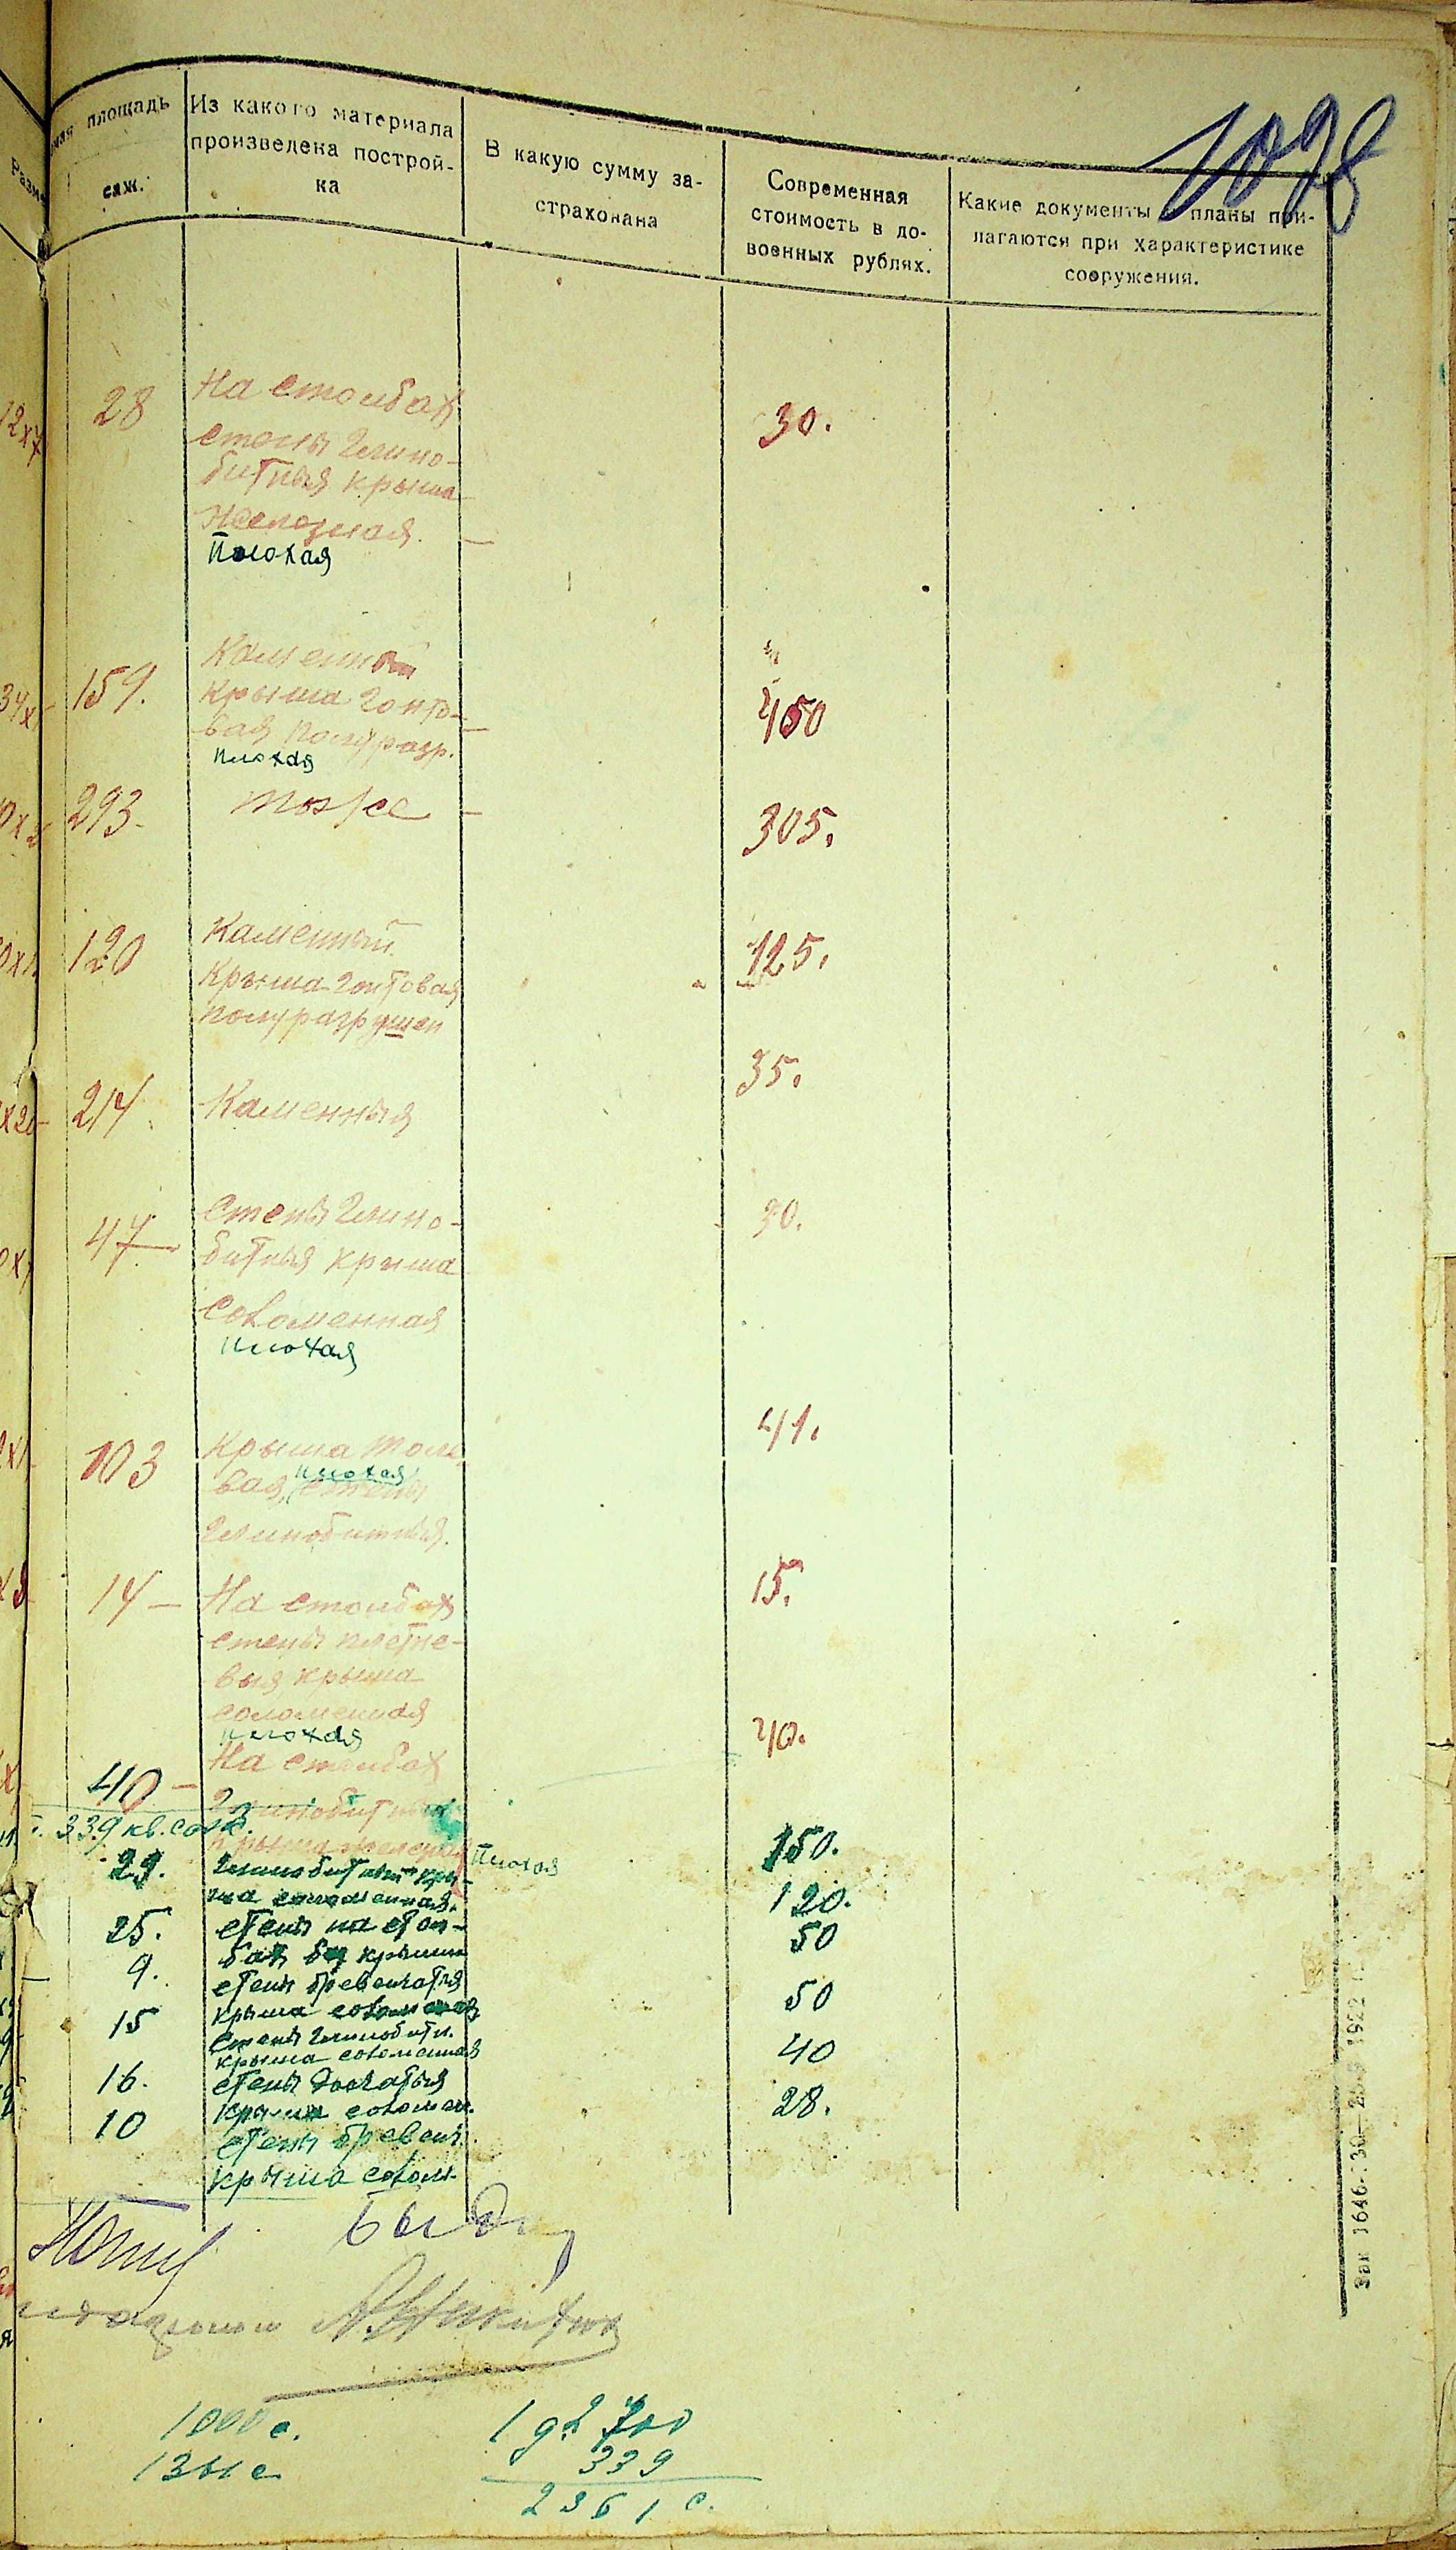 1098
площадь
саж.
Из какого материала
произведена построй-
ка
В какую сумму за-
страхована
Современная
стоимость в до-
военных рублях.
Какие документы и планы при-
лагаются при характеристике
сооружения.
28 На столбах 30.
стены глино-
битныя крыша
железная.
плохая
159. Каменный 450
крыша гонто-
вая полуразр.
плохая
293- тоже 305.
120 Каменный 125.
крыша гонтовая
полуразрушен
214. Каменныя 35.
47 Стены глино- 30.
битныя крыша
соломенная
плохая
103 Крыша толе- 41.
плохая
вая, стены
глинобитныя.
14 — На столбах 15.
стены плетне-
выя крыша
соломенная
плохая
40 — На столбах 40.
глинобитныя
339 кв. саж.
крыша железная плохая
29. Глинобитный кры- 150.
ша соломенная.
25. стены на стол- 120.
бах без крыши
9. стены бревенчатыя 50
крыша соломенная
15 Стены глинобитн. 50
крыша соломенная
16. стены дощатыя 40
крыша соломен.
10 стены бревенч. 28.
крыша солом.
1000 с.
1361 с
339
2361 с.
Зак 1646-